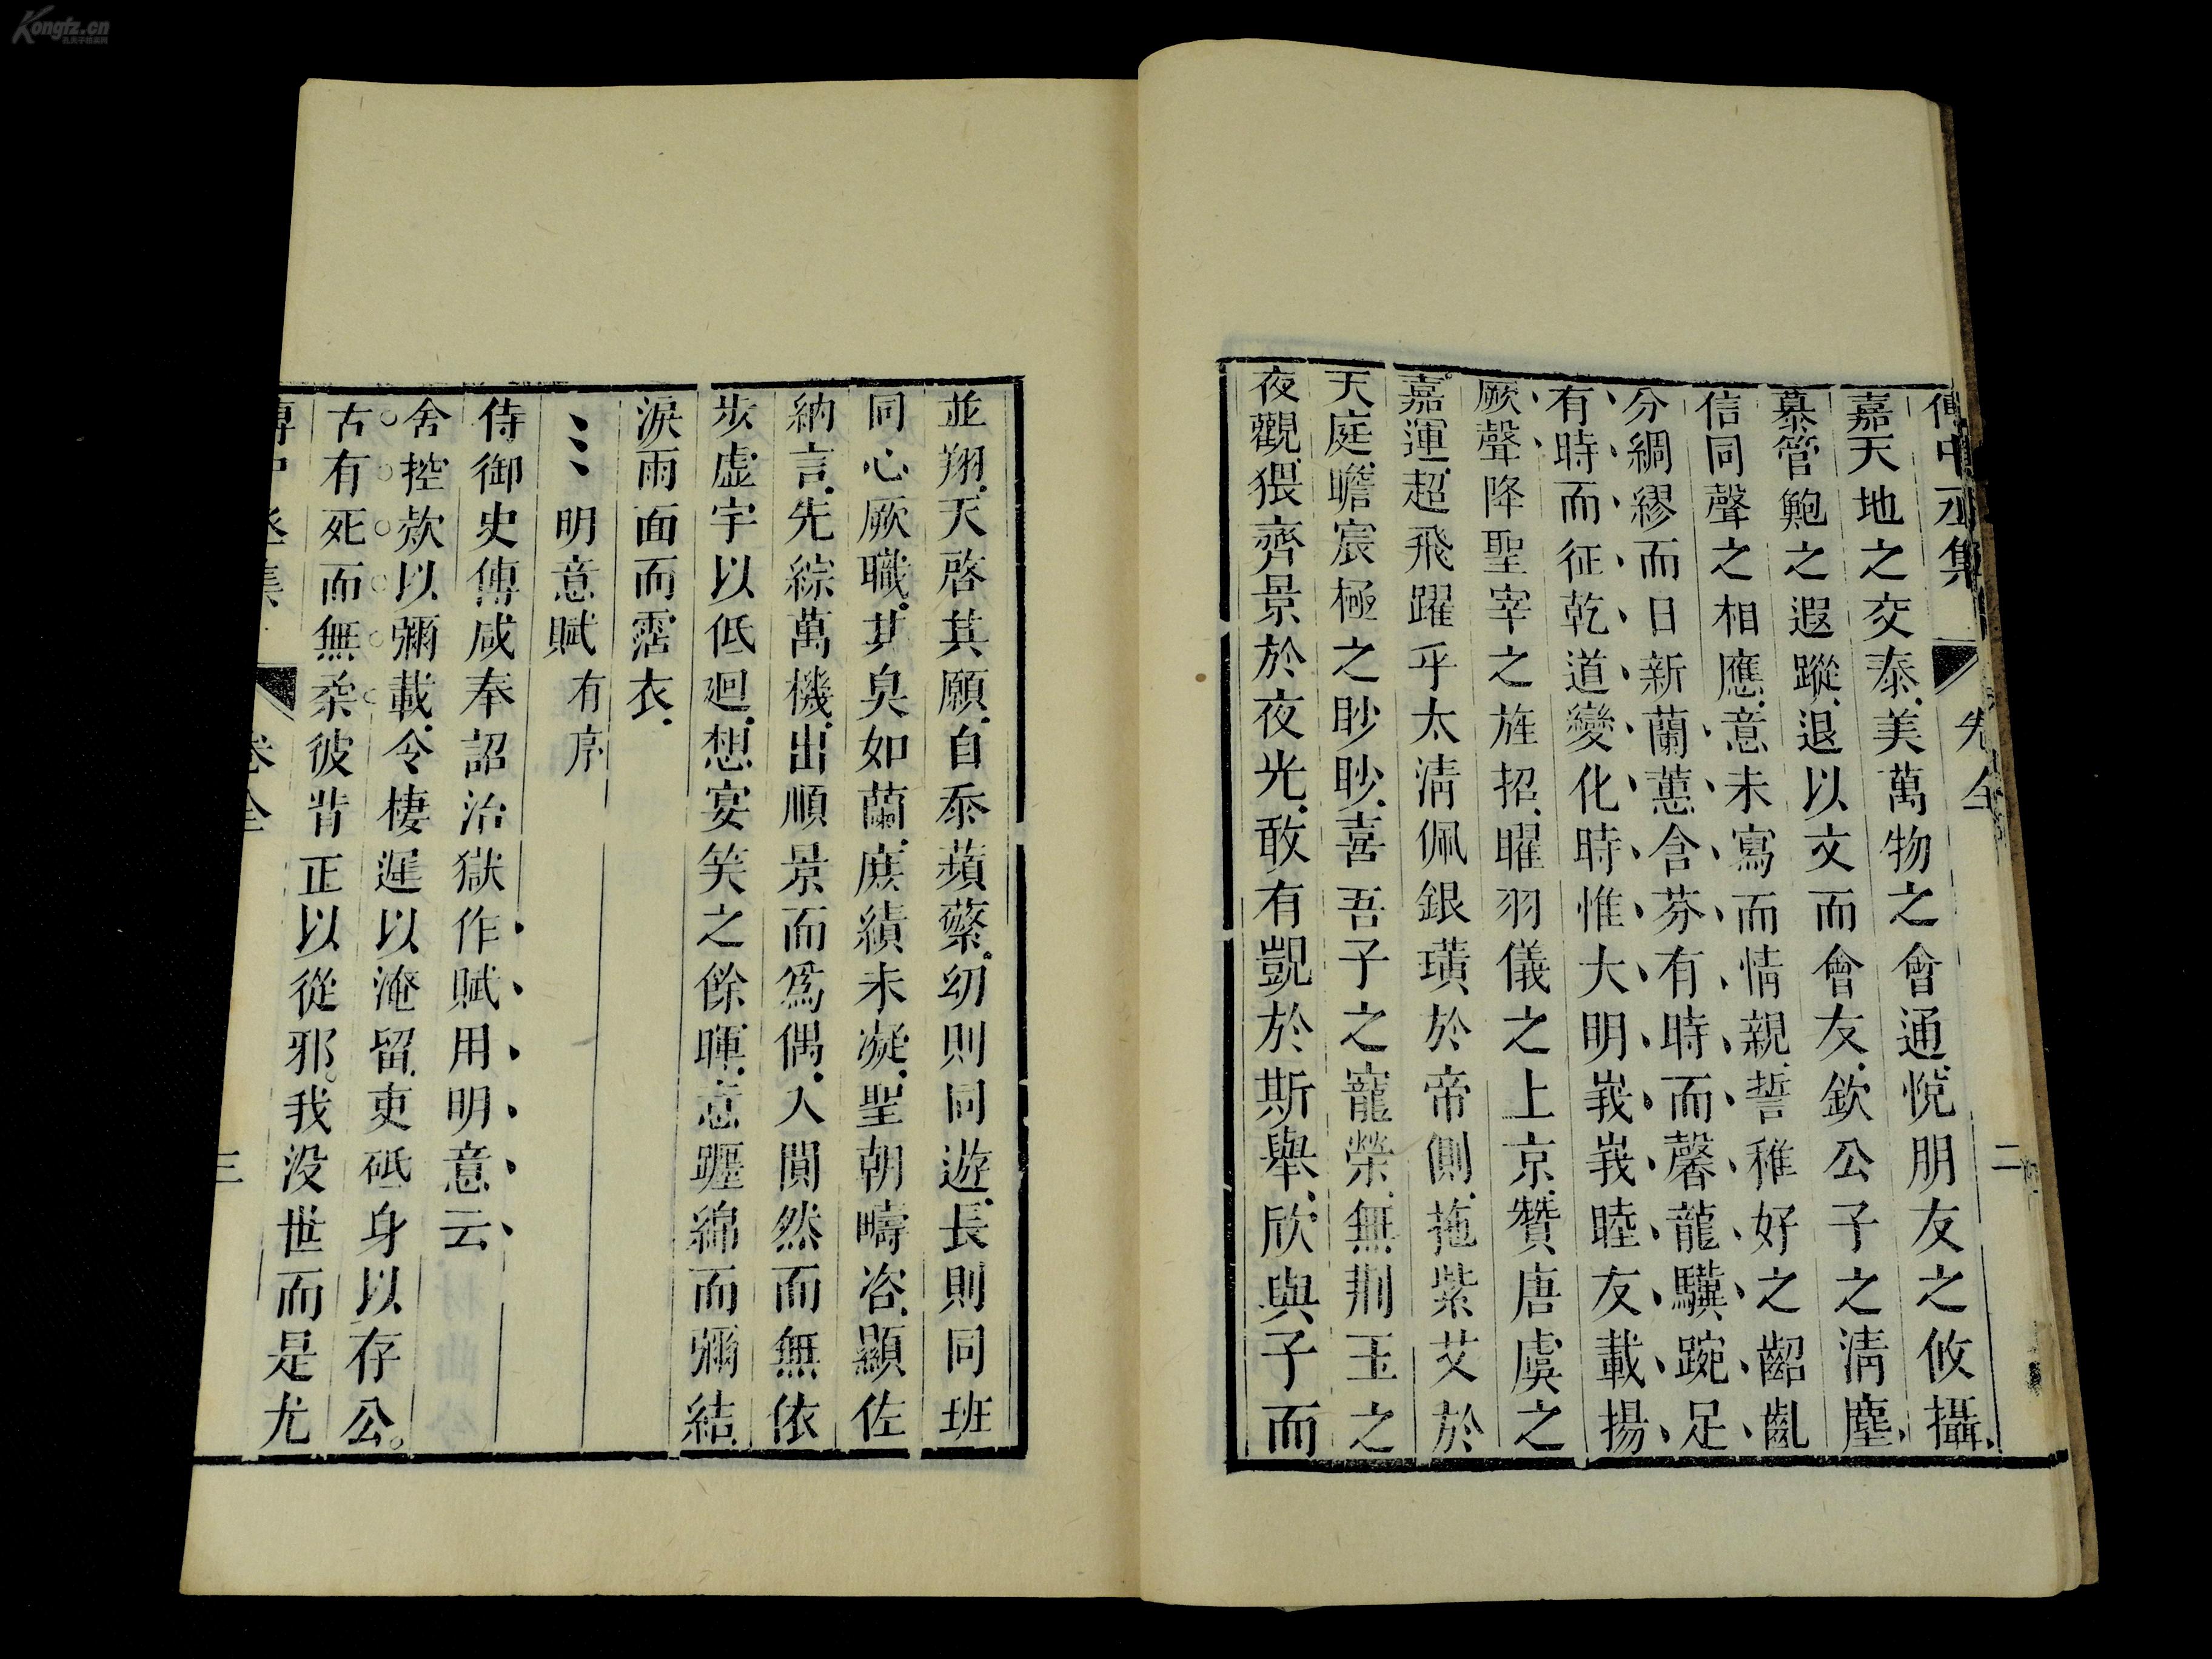 Kongfz.cn
傅中丞集 卷全 二
嘉天地之交泰美萬物之會通悅朋友之攸攝
慕管鮑之遐蹤退以文而會友欽公子之清塵
信同聲之相應意未寫而情親誓稚好之齠齓
分綢繆而日新蘭蕙含芬有時而馨龍驥踠足
有時而征乾道變化時惟大明峩峩睦友載揚
厥聲降聖宰之旌招曜羽儀之上京贊唐虞之
嘉運超飛躍乎太清佩銀璜於帝側拖紫艾於
天庭瞻宸極之眇眇喜吾子之寵榮無荆玉之
夜觀猥齊景於夜光敢有覬於斯舉欣與子而
並翔天啓其願自忝蘋蘩幼則同遊長則同班
同心厥職其臭如蘭庶績未凝聖朝疇咨顯佐
納言先綜萬機出順景而爲偶入閒然而無依
步虛宇以低迴想宴笑之餘暉意躔綿而彌結
淚雨面而霑衣
明意賦有序
侍御史傅咸奉詔治獄作賦用明意云
舍控欻以彌載令棲遲以淹留吏砥身以存公
古有死而無柔彼背正以從邪我没世而是尤
傅中丞集 卷全 三